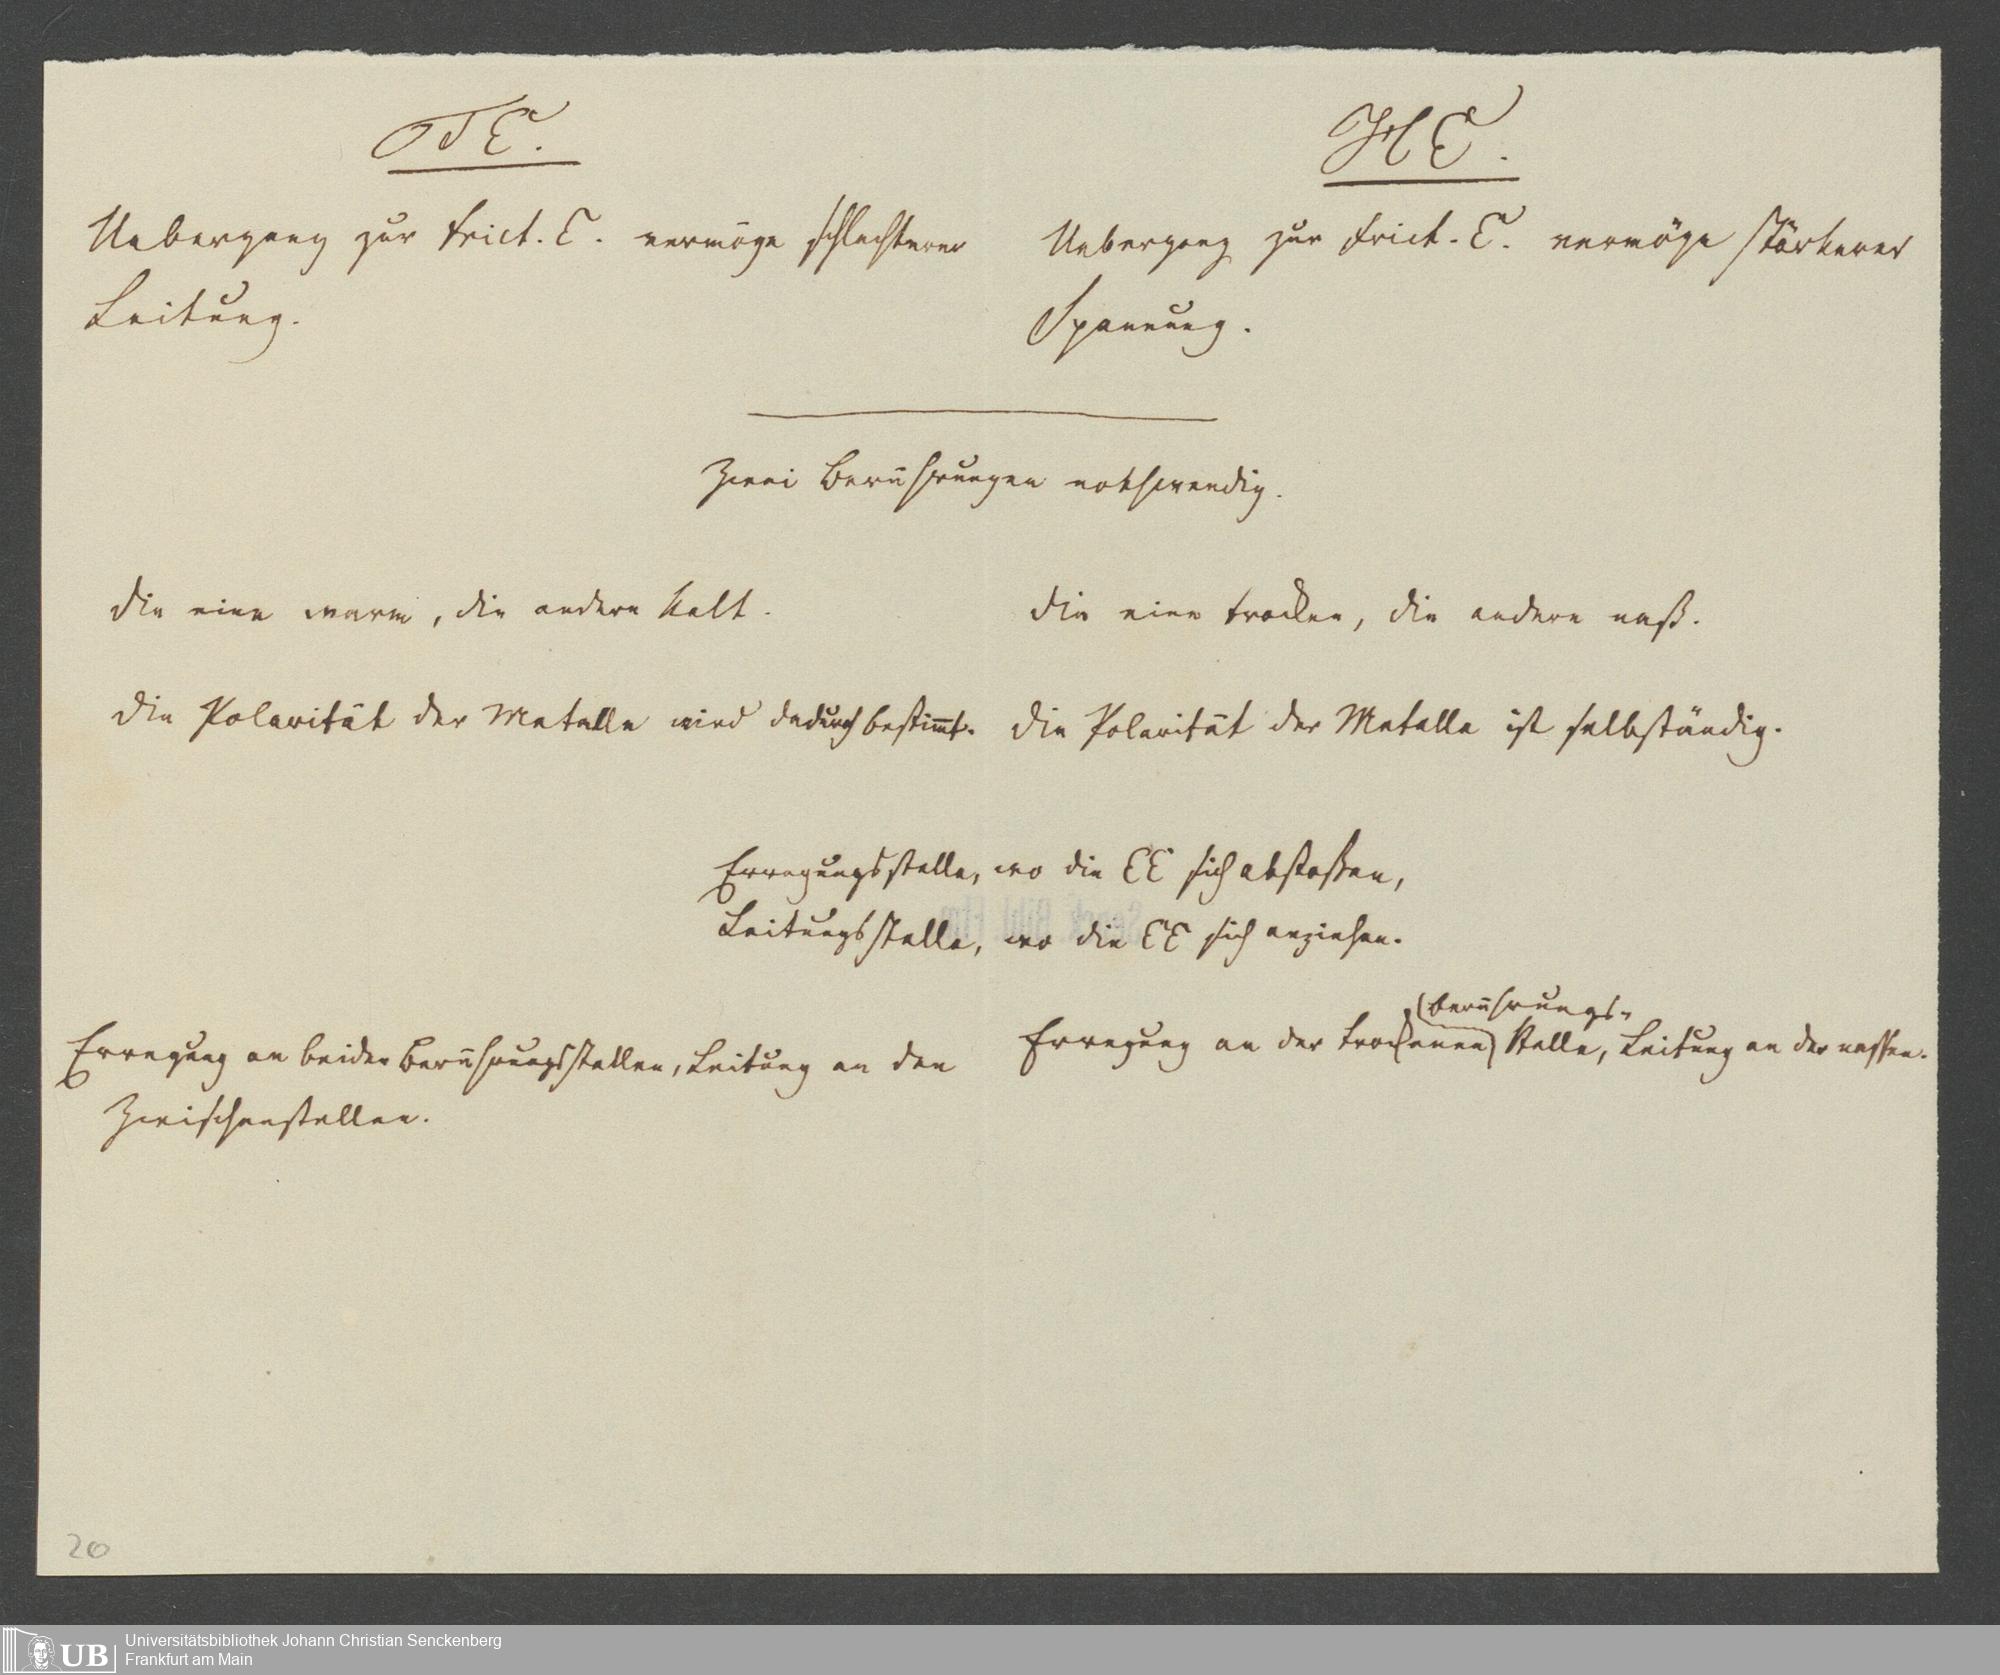 T E.
H E.
Uebergang zur Frict. E. vermöge schlechterer
Leitung.
Uebergang zur Frict. E. vermöge stärkerer
Spannung.
Zwei Berührungen nothwendig.
die eine warm, die andere kalt.
die eine trocken, die andere naß.
die Polarität der Metalle wird dadurch bestim̅t.
die Polarität der Metalle ist selbständig.
Erregungsstelle, wo die EE sich abstoßen,
Leitungsstelle, wo die EE sich anziehen.
Erregung an beiden Berührungsstellen, Leitung an den
Zwischenstellen.
(berührungs-
Erregung an der trockenen) Stelle, Leitung an der nassen.
Senck. Bibl. Ffm
20
UB
Universitätsbibliothek Johann Christian Senckenberg
Frankfurt am Main